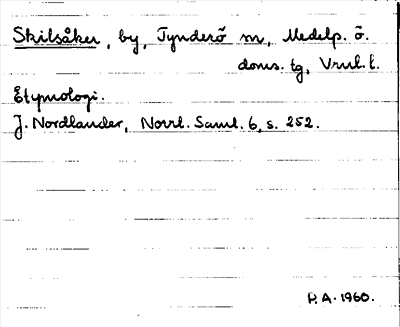 Skilsåker, by, Tynderö sn, Medelp. ö.
doms. tg, Vnrl. l.
Etymologi.
J. Nordlander, Norrl. Saml. 6, s. 252.
P.A. 1960.